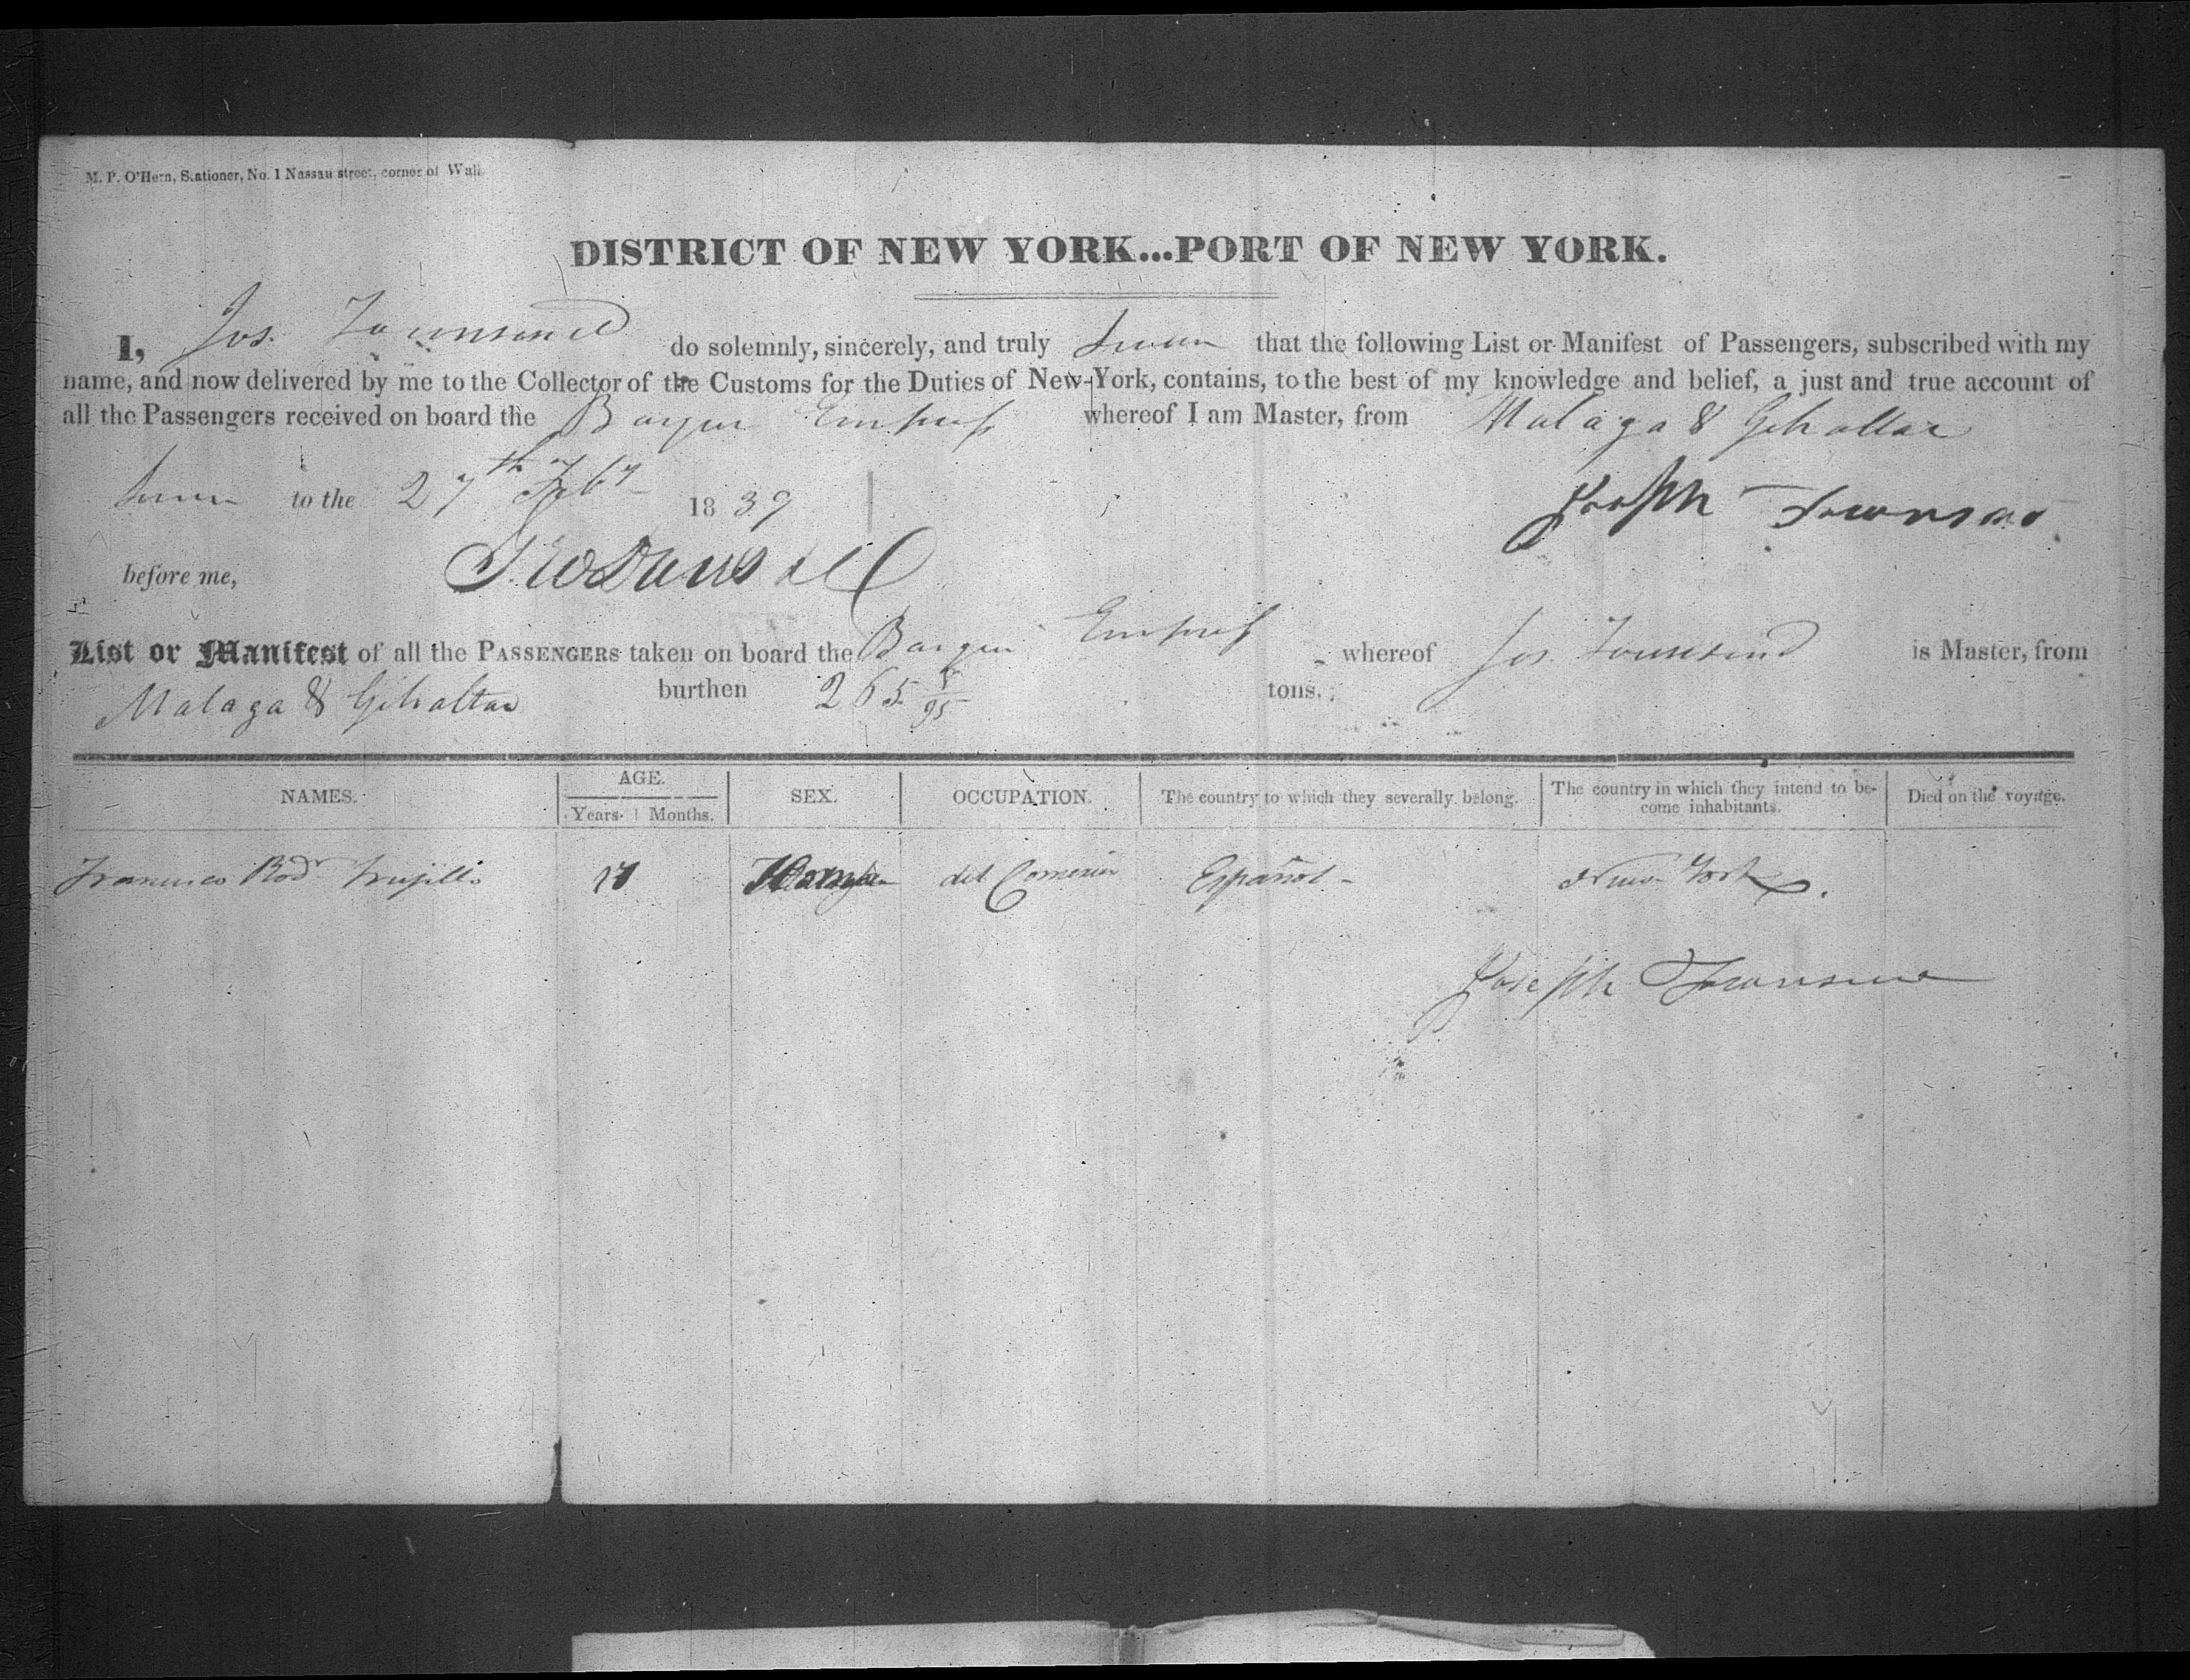 M. P. O'Hern, Stationer, No. 1 Nassau street, corner of Wall.
DISTRICT OF NEW YORK...PORT OF NEW YORK.
I, Jos. Townsend do solemnly, sincerely, and truly swear that the following List or Manifest of Passengers, subscribed with my
name, and now delivered by me to the Collector of the Customs for the Duties of New-York, contains, to the best of my knowledge and belief, a just and true account of
all the Passengers received on board the Barque Empress whereof I am Master, from Malaga & Gibraltar
Sworn to the 27th Feby 1839
Joseph Townsend
before me,
List or Manifest of all the PASSENGERS taken on board the Barque Empress whereof Jos. Townsend is Master, from
Malaga & Gibraltar burthen 265 5/95 tons.
NAMES. AGE. SEX. OCCUPATION. The country to which they severally belong. The country in which they intend to be- Died on the voyage.
Years. Months. come inhabitants.
Francisco Rodr Trujillo del Comercio Español New York.
Joseph Townsend